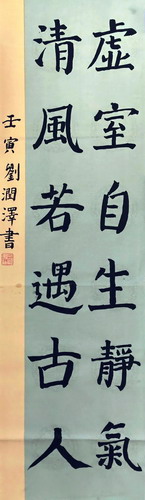 虛室自生靜氣
清風若遇古人
壬寅劉潤澤書